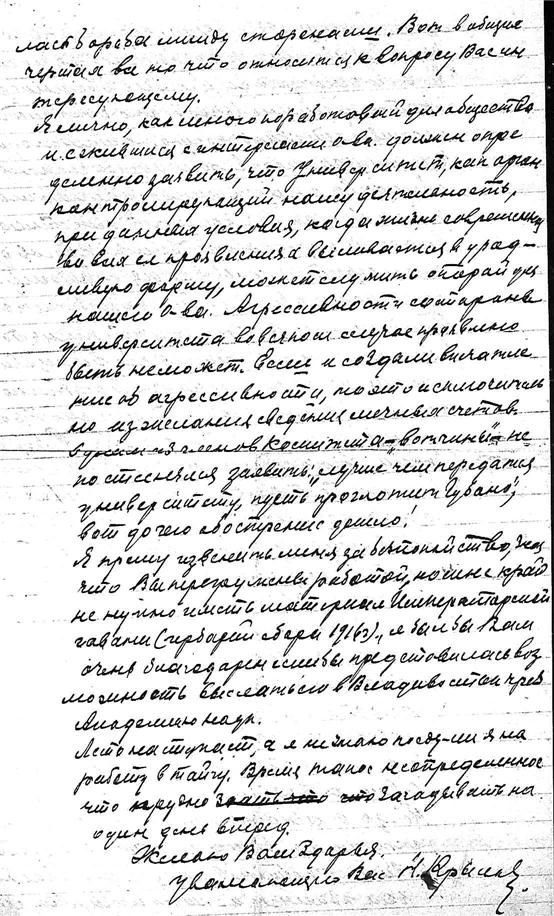 между сторонами. Вот в общих
чертах вам то что относится к вопросу Вас ин
тересующему.
Я лично, как много поработавший для общества
и сжившийся с интересами о-ва. должен опре
деленно заявить, что Университет, как орган
контролирующий нашу деятельность,
при данных условиях, когда жизнь современная
во всех ее проявлениях выливается в урод-
ливую форму, может служить опорой для
нашего о-ва. Агрессивности со стороны
университета во всяком случае проявлено
быть не может. Если и создали впечатле
ние об агрессивности, то это исключитель
но из желания сведения личных счетов.
Один из членов Комитета "вотчины" не
постеснялся заявить: "лучше чем передатся
университету, пусть проглотит Губоно",
вот до чего обострение дошло!
Я прошу извинить меня за беспокойство, знаю
что Вы перегружены работой, но мне край
не нужно иметь материал Императорской
гавани (гербарий сбора 1916 г)., я был бы Вам
очень благодарен если бы представилась воз
можность выслать его в Владивосток через
Академию наук.
Лето наступает, а я не знаю поеду-ли я на
работу в тайгу. Время такое неопределенное
что трудно загадывать на
один день вперед.
Желаю Вам здоровья.
Уважающий Вас Н. Крылов